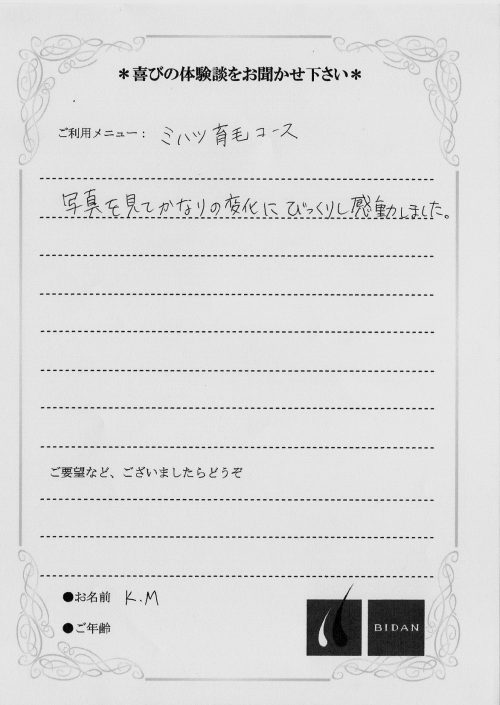 ＊喜びの体験談をお聞かせ下さい＊
ご利用メニュー： ミハツ育毛コース
写真を見てかなりの変化にびっくりし感動しました。
ご要望など、ございましたらどうぞ
●お名前 K.M
●ご年齢
BIDAN